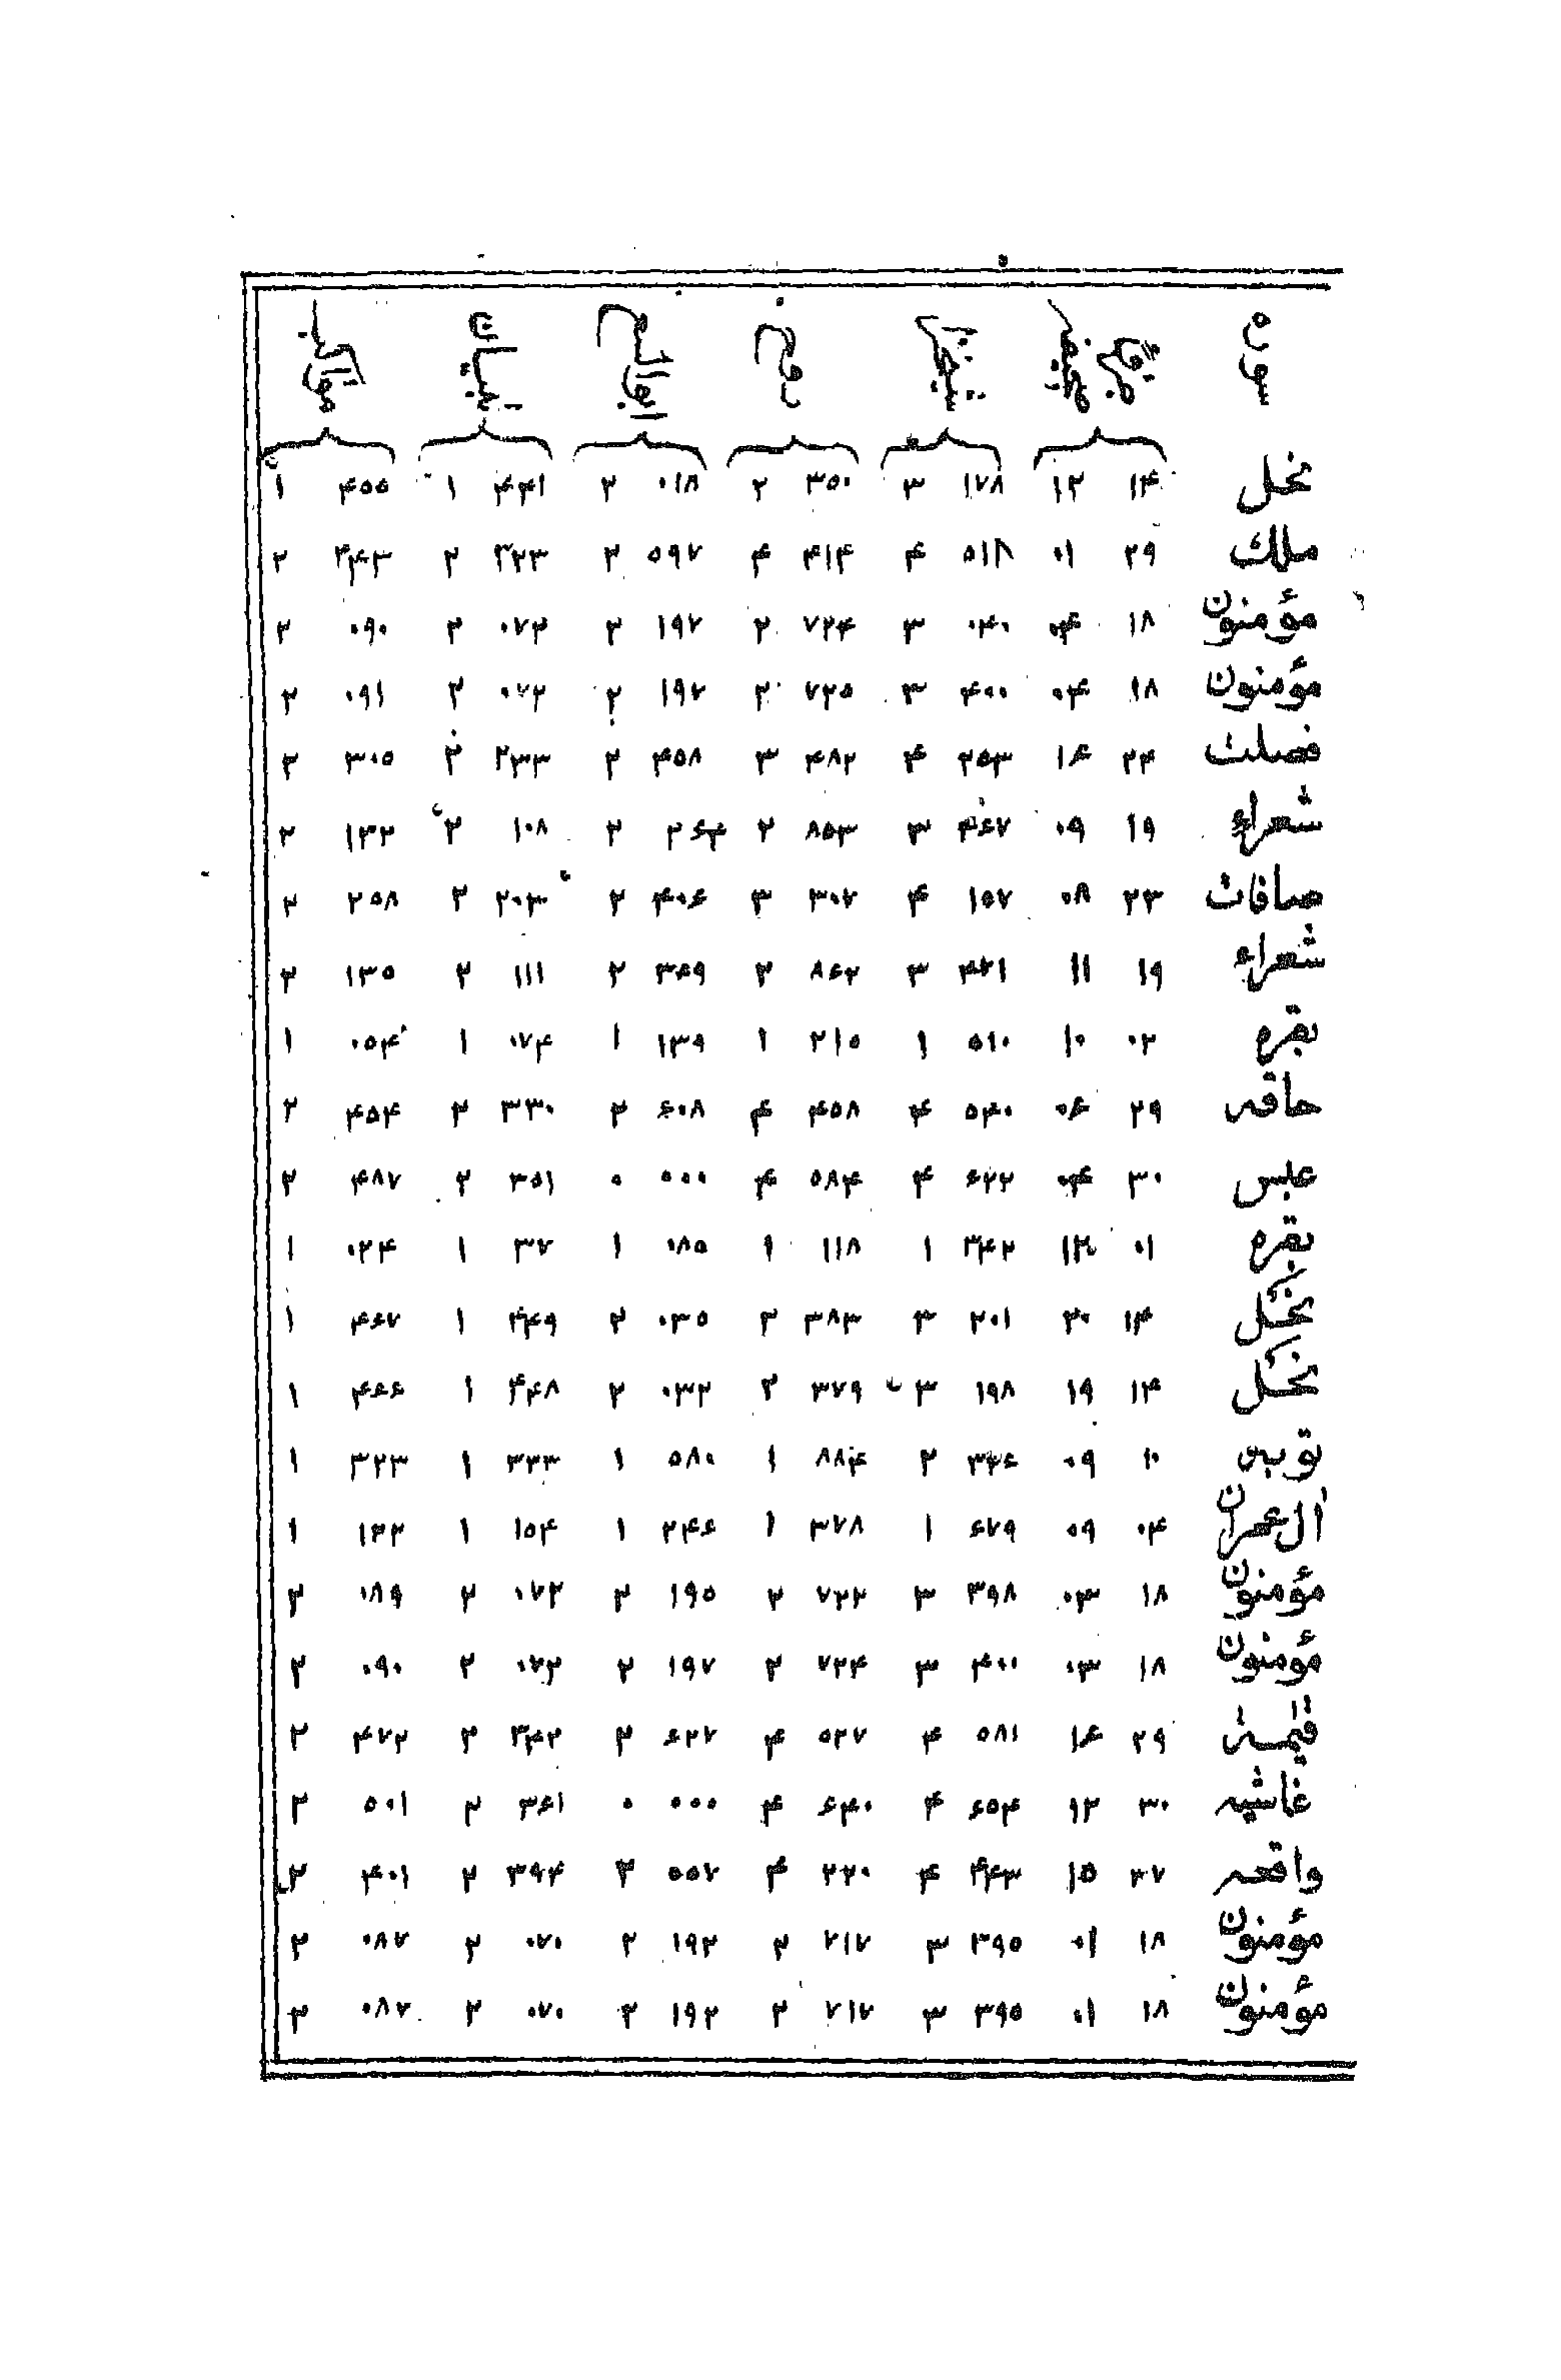 نحل ۱۴ ۱۲ ۱۷۸ ۳ ۳۵۰ ۲ ۰۱۸ ۲ ۴۴۱ ۱ ۴۵۵ ۱
ملك ۲۹ ۰۱ ۵۱۸ ۴ ۴۱۴ ۴ ۵۹۷ ۲ ۳۲۳ ۲ ۴۴۳ ۲
مؤمنون ۱۸ ۰۴ ۰۴۰ ۳ ۷۲۴ ۲ ۱۹۷ ۲ ۰۷۲ ۲ ۰۹۰ ۲
مؤمنون ۱۸ ۰۴ ۴۰۰ ۳ ۷۲۵ ۲ ۱۹۷ ۲ ۰۷۲ ۲ ۰۹۱ ۲
فصلت ۲۴ ۱۶ ۲۵۳ ۴ ۴۸۲ ۳ ۴۵۸ ۲ ۲۳۳ ۲ ۳۰۵ ۲
شعراء ۱۹ ۰۹ ۴۶۷ ۳ ۸۵۳ ۲ ۲۶۴ ۲ ۱۰۸ ۲ ۱۳۲ ۲
صافات ۲۳ ۰۸ ۱۵۷ ۴ ۳۰۷ ۳ ۴۰۶ ۲ ۲۰۳ ۲ ۲۵۸ ۲
شعراء ۱۹ ۱۱ ۴۷۱ ۳ ۸۶۲ ۲ ۳۶۹ ۲ ۱۱۱ ۲ ۱۳۵ ۲
بقره ۰۲ ۱۰ ۵۱۰ ۱ ۲۱۵ ۱ ۱۳۹ ۱ ۰۷۴ ۱ ۰۵۴ ۱
حاقه ۲۹ ۰۶ ۵۴۰ ۴ ۴۵۸ ۴ ۶۰۸ ۲ ۳۳۰ ۲ ۴۵۴ ۲
عبس ۳۰ ۰۴ ۶۲۲ ۴ ۵۸۴ ۴ ۰۰۰ ۰ ۳۵۱ ۲ ۴۸۷ ۲
بقره ۰۱ ۱۲ ۳۴۲ ۱ ۱۱۸ ۱ ۰۸۵ ۱ ۳۷ ۱ ۰۲۴ ۱
نحل ۱۴ ۲۰ ۲۰۱ ۳ ۳۸۳ ۲ ۰۳۵ ۲ ۴۴۹ ۱ ۴۶۷ ۱
نحل ۱۴ ۱۹ ۱۹۸ ۳ ۳۷۹ ۲ ۰۳۲ ۲ ۴۴۸ ۱ ۴۶۶ ۱
توبه ۱۰ ۰۹ ۳۴۶ ۲ ۸۸۴ ۱ ۵۸۰ ۱ ۳۳۳ ۱ ۳۲۳ ۱
آل عمران ۰۴ ۰۹ ۶۷۹ ۱ ۳۷۸ ۱ ۲۴۶ ۱ ۱۵۴ ۱ ۱۲۲ ۱
مؤمنون ۱۸ ۰۳ ۳۹۸ ۳ ۷۲۲ ۲ ۱۹۵ ۲ ۰۷۲ ۲ ۰۸۹ ۲
مؤمنون ۱۸ ۰۳ ۴۰۰ ۳ ۷۲۴ ۲ ۱۹۷ ۲ ۰۷۲ ۲ ۰۹۰ ۲
قيمة ۲۹ ۱۶ ۵۸۱ ۴ ۵۲۷ ۴ ۶۲۷ ۲ ۳۴۲ ۲ ۴۷۲ ۲
غاشيه ۳۰ ۱۲ ۶۵۴ ۴ ۶۴۰ ۴ ۰۰۰ ۰ ۳۶۱ ۲ ۵۰۱ ۲
واقعه ۲۷ ۱۵ ۴۴۳ ۴ ۲۲۰ ۴ ۵۵۷ ۲ ۳۹۴ ۲ ۴۰۱ ۲
مؤمنون ۱۸ ۰۱ ۳۹۵ ۳ ۷۱۷ ۲ ۱۹۲ ۲ ۰۷۰ ۲ ۰۸۷ ۲
مؤمنون ۱۸ ۰۱ ۳۹۵ ۳ ۷۱۷ ۲ ۱۹۲ ۲ ۰۷۰ ۲ ۰۸۷ ۲